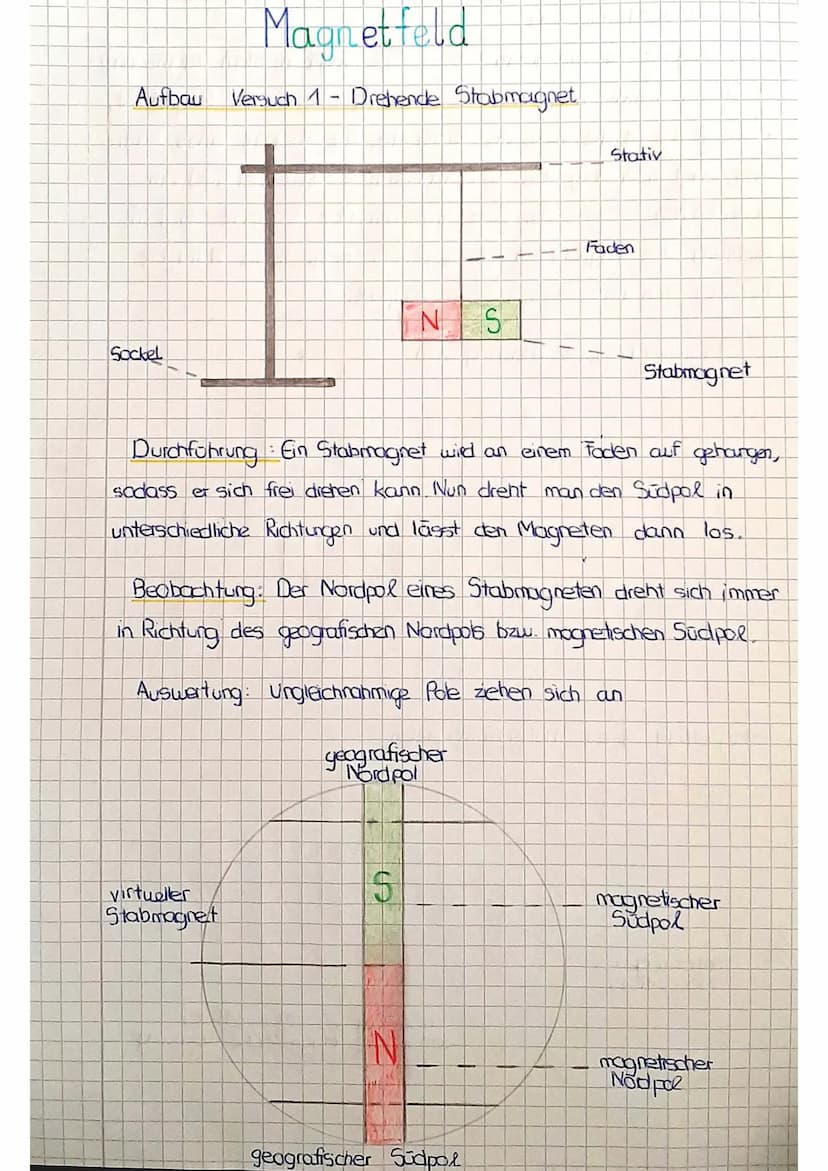 Magnetfeld
Aufbau Versuch 1 - Drehende Stabmagnet
Stativ
Faden
N S
Sockel
Stabmagnet
Durchführung: Ein Stabmagnet wird an einem Faden auf gehangen,
sodass er sich frei drehen kann. Nun dreht man den Südpol in
unterschiedliche Richtungen und lässt den Magneten dann los.
Beobachtung: Der Nordpol eines Stabmagneten dreht sich immer
in Richtung des geografischen Nordpols bzw. magnetischen Südpol.
Auswertung: Ungleichnahmige Pole ziehen sich an
geografischer
Nordpol
S
virtueller
Stabmagnet
magnetischer
Südpol
N
magnetischer
Nodpol
geografischer Südpol